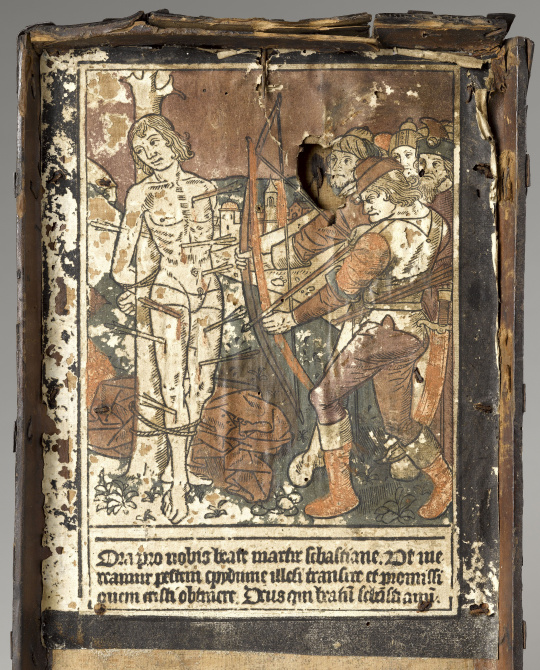 Ora pro nobis beate martir sebastiane. Ut me
reamur pestem epydimie illesi transire et promissi
onem cristi obtinere. Deus qui beatū